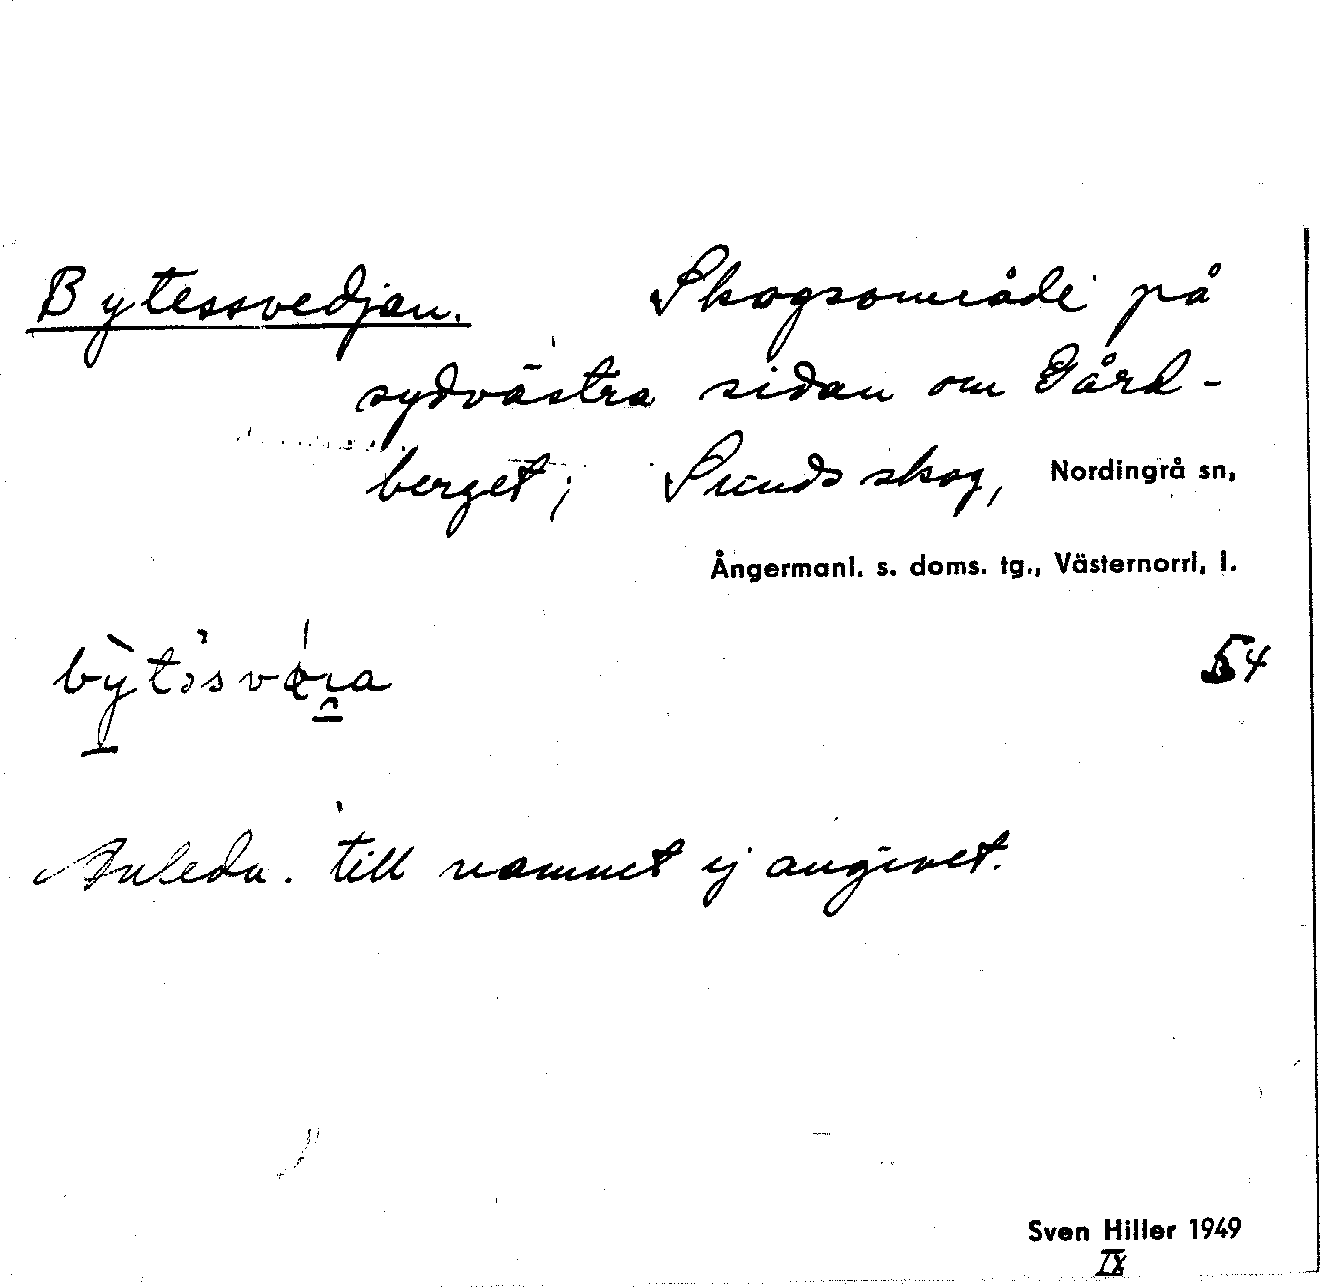 Bytessvedjan. Skogsområde på
sydvästra sidan om Gård-
berget; Sunds skog, Nordingrå sn,
Ångermanl. s. doms. tg., Västernorrl. l.
54
Anledn. till namnet ej angivet.
Sven Hiller 1949
IX